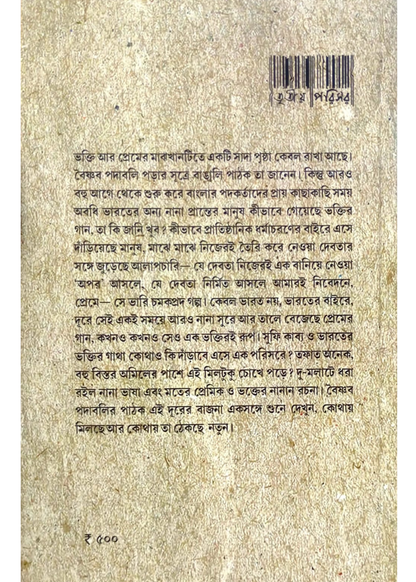 তৃতীয় পরিসর
ভক্তি আর প্রেমের মাঝখানটিতে একটি সাদা পৃষ্ঠা কেবল রাখা আছে।
বৈষ্ণব পদাবলি পড়ার সূত্রে বাঙালি পাঠক তা জানেন। কিন্তু আরও
বহু আগে থেকে শুরু করে বাংলার পদকর্তাদের প্রায় কাছাকাছি সময়
অবধি ভারতের অন্য নানা প্রান্তের মানুষ কীভাবে গেয়েছে ভক্তির
গান, তা কি জানি খুব? কীভাবে প্রাতিষ্ঠানিক ধর্মাচরণের বাইরে এসে
দাঁড়িয়েছে মানুষ, মাঝে মাঝে নিজেরই তৈরি করে নেওয়া দেবতার
সঙ্গে জুড়েছে আলাপচারি— যে দেবতা নিজেরই এক বানিয়ে নেওয়া
'অপর' আসলে, যে দেবতা নির্মিত আসলে আমারই নিবেদনে,
প্রেমে— সে ভারি চমকপ্রদ গল্প। কেবল ভারত নয়, ভারতের বাইরে,
দূরে সেই একই সময়ে আরও নানা সুরে আর তালে বেজেছে প্রেমের
গান, কখনও কখনও সেও এক ভক্তিরই রূপ। সুফি কাব্য ও ভারতের
ভক্তির গাথা কোথাও কি দাঁড়াবে এসে এক পরিসরে? তফাত অনেক,
বহু বিস্তর অমিলের পাশে এই মিলটুকু চোখে পড়ে? দু-মলাটে ধরা
রইল নানা ভাষা এবং মতের প্রেমিক ও ভক্তের নানান রচনা। বৈষ্ণব
পদাবলির পাঠক এই দূরের বাজনা একসঙ্গে শুনে দেখুন, কোথায়
মিলছে আর কোথায় তা ঠেকছে নতুন।
₹ ৫০০